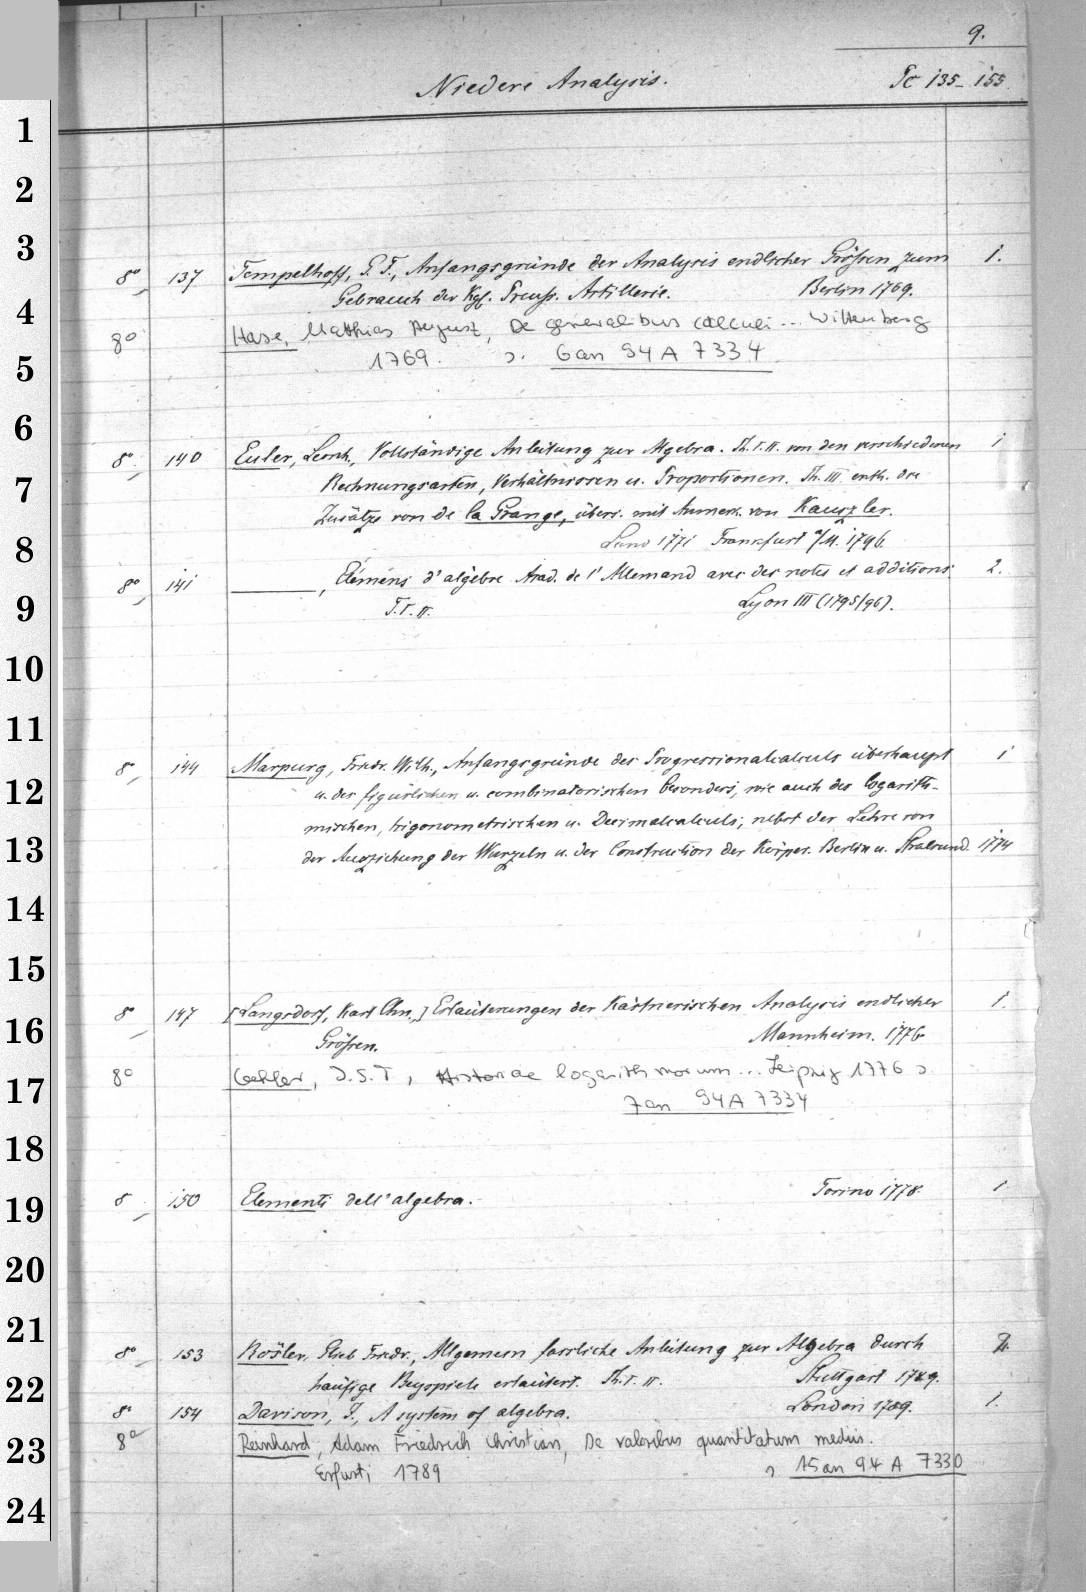 9.
Niedere Analysis. Tc 135-155.
1
2
3
8° 137 Tempelhoff, G. F., Anfangsgründe der Analysis endlicher Grössen zum 1.
Gebrauch der Kgl. Preuss. Artillerie. Berlin 1769.
4
8° Hase, Matthias August, De generalibus calculi ... Wittenberg
1769. s. 6 an 94 A 7334
5
6
8° 140 Euler, Leonh., Vollständige Anleitung zur Algebra. Th. I. II. von den verschiedenen 1
7
Rechnungsarten, Verhältnissen u. Proportionen. Th. III enth. die
Zusätze von de la Grange, übers. mit Anmerk. von Kauszler.
8
Lund 1771 Frankfurt a/M. 1796.
8° 141 ———, Eléméns d'algèbre trad. de l'Allemand avec des notes et additions. 2.
9
T. I. II. Lyon III (1795/96).
10
11
8° 144 Marpurg, Friedr. Wilh., Anfangsgründe des Progressionalcalculs überhaupt 1
12
u. des figürlichen u. combinatorischen besonders, wie auch des logarith-
mischen, trigonometrischen u. Decimalcalculs; nebst der Lehre von
13
der Ausziehung der Wurzeln u. der Construction der Körper. Berlin u. Stralsund. 1774
14
15
8° 147 [Langsdorf, Karl Chn.] Erläuterungen der Kästnerischen Analysis endlicher 1.
16
Grössen. Mannheim. 1776.
8° Gehler, J. S. T, Historiae logarithmorum ... Leipzig 1776 s.
17
7 an 94 A 7334
18
8 150 Elementi dell'algebra. Torino 1778. 1
19
20
21
8° 153 Rösler, Glieb Friedr., Allgemein fassliche Anleitung zur Algebra durch 2.
22
häufige Beyspiele erläutert. Th. I. II. Stuttgart 1789.
8° 154 Davison, J., A system of algebra. London 1789. 1.
8° Reinhard, Adam Friedrich Christian, De valoribus quantitatum mediis.
23
Erfurti 1789 s 15 an 94 A 7330
24